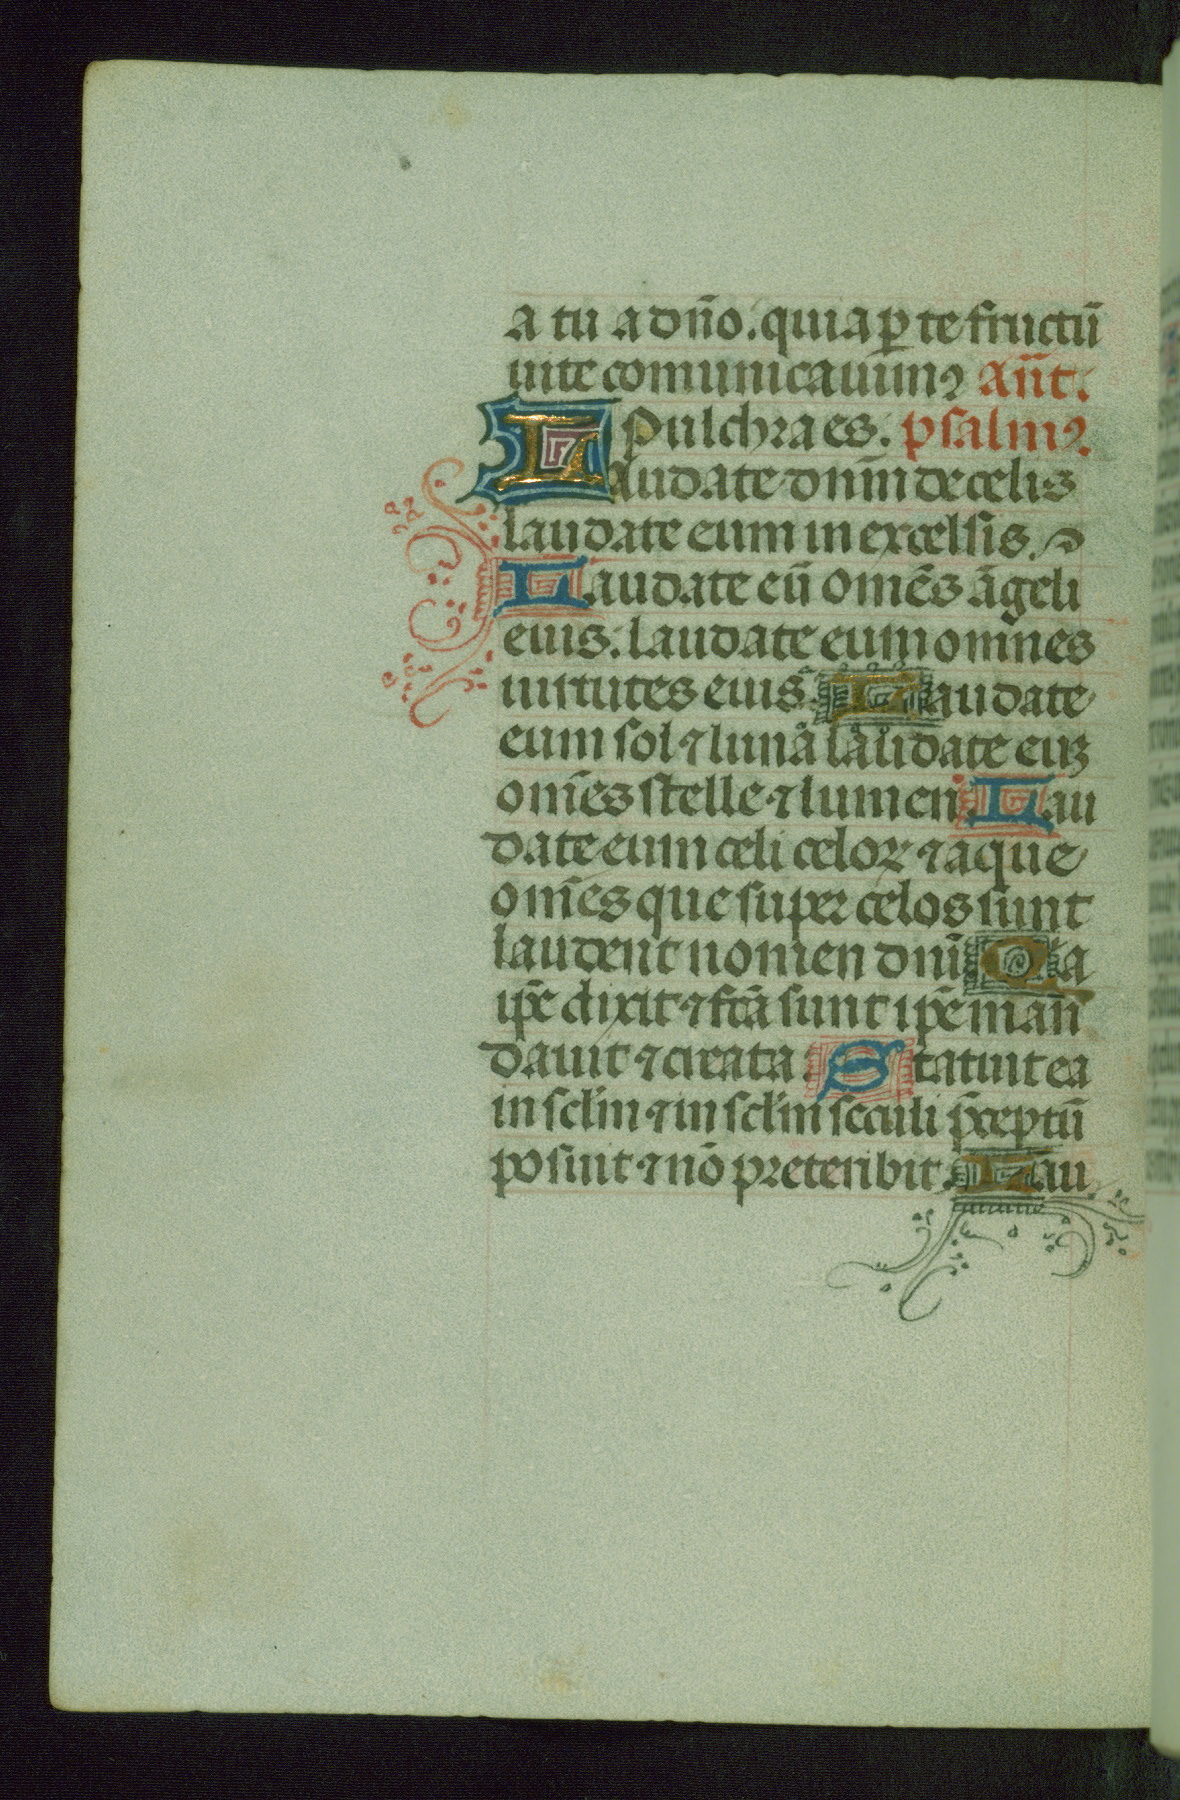 a tu a dño. quia ꝑ te fructū
uite comunicauimꝰ Añt.
Pulchra es. psalmꝰ.
Laudate dnm̄ de celis
laudate eum in excelsis.
Laudate eū om̄es āgeli
eius: laudate eum omnes
uirtutes eius. Laudate
eum sol ⁊ luna laudate euʒ
om̄es stelle ⁊ lumen. Lau
date eum celi celoꝝ ⁊ aque
om̄es que super celos sunt
laudent nomen dnī Qa
ip̄e dixit ⁊ fc̄a sunt ip̄e man
dauit ⁊ creata. Statuit ea
in sclm̄ ⁊ in sclm̄ seculi p̄ceptū
posuit ⁊ nō preteribit. Lau